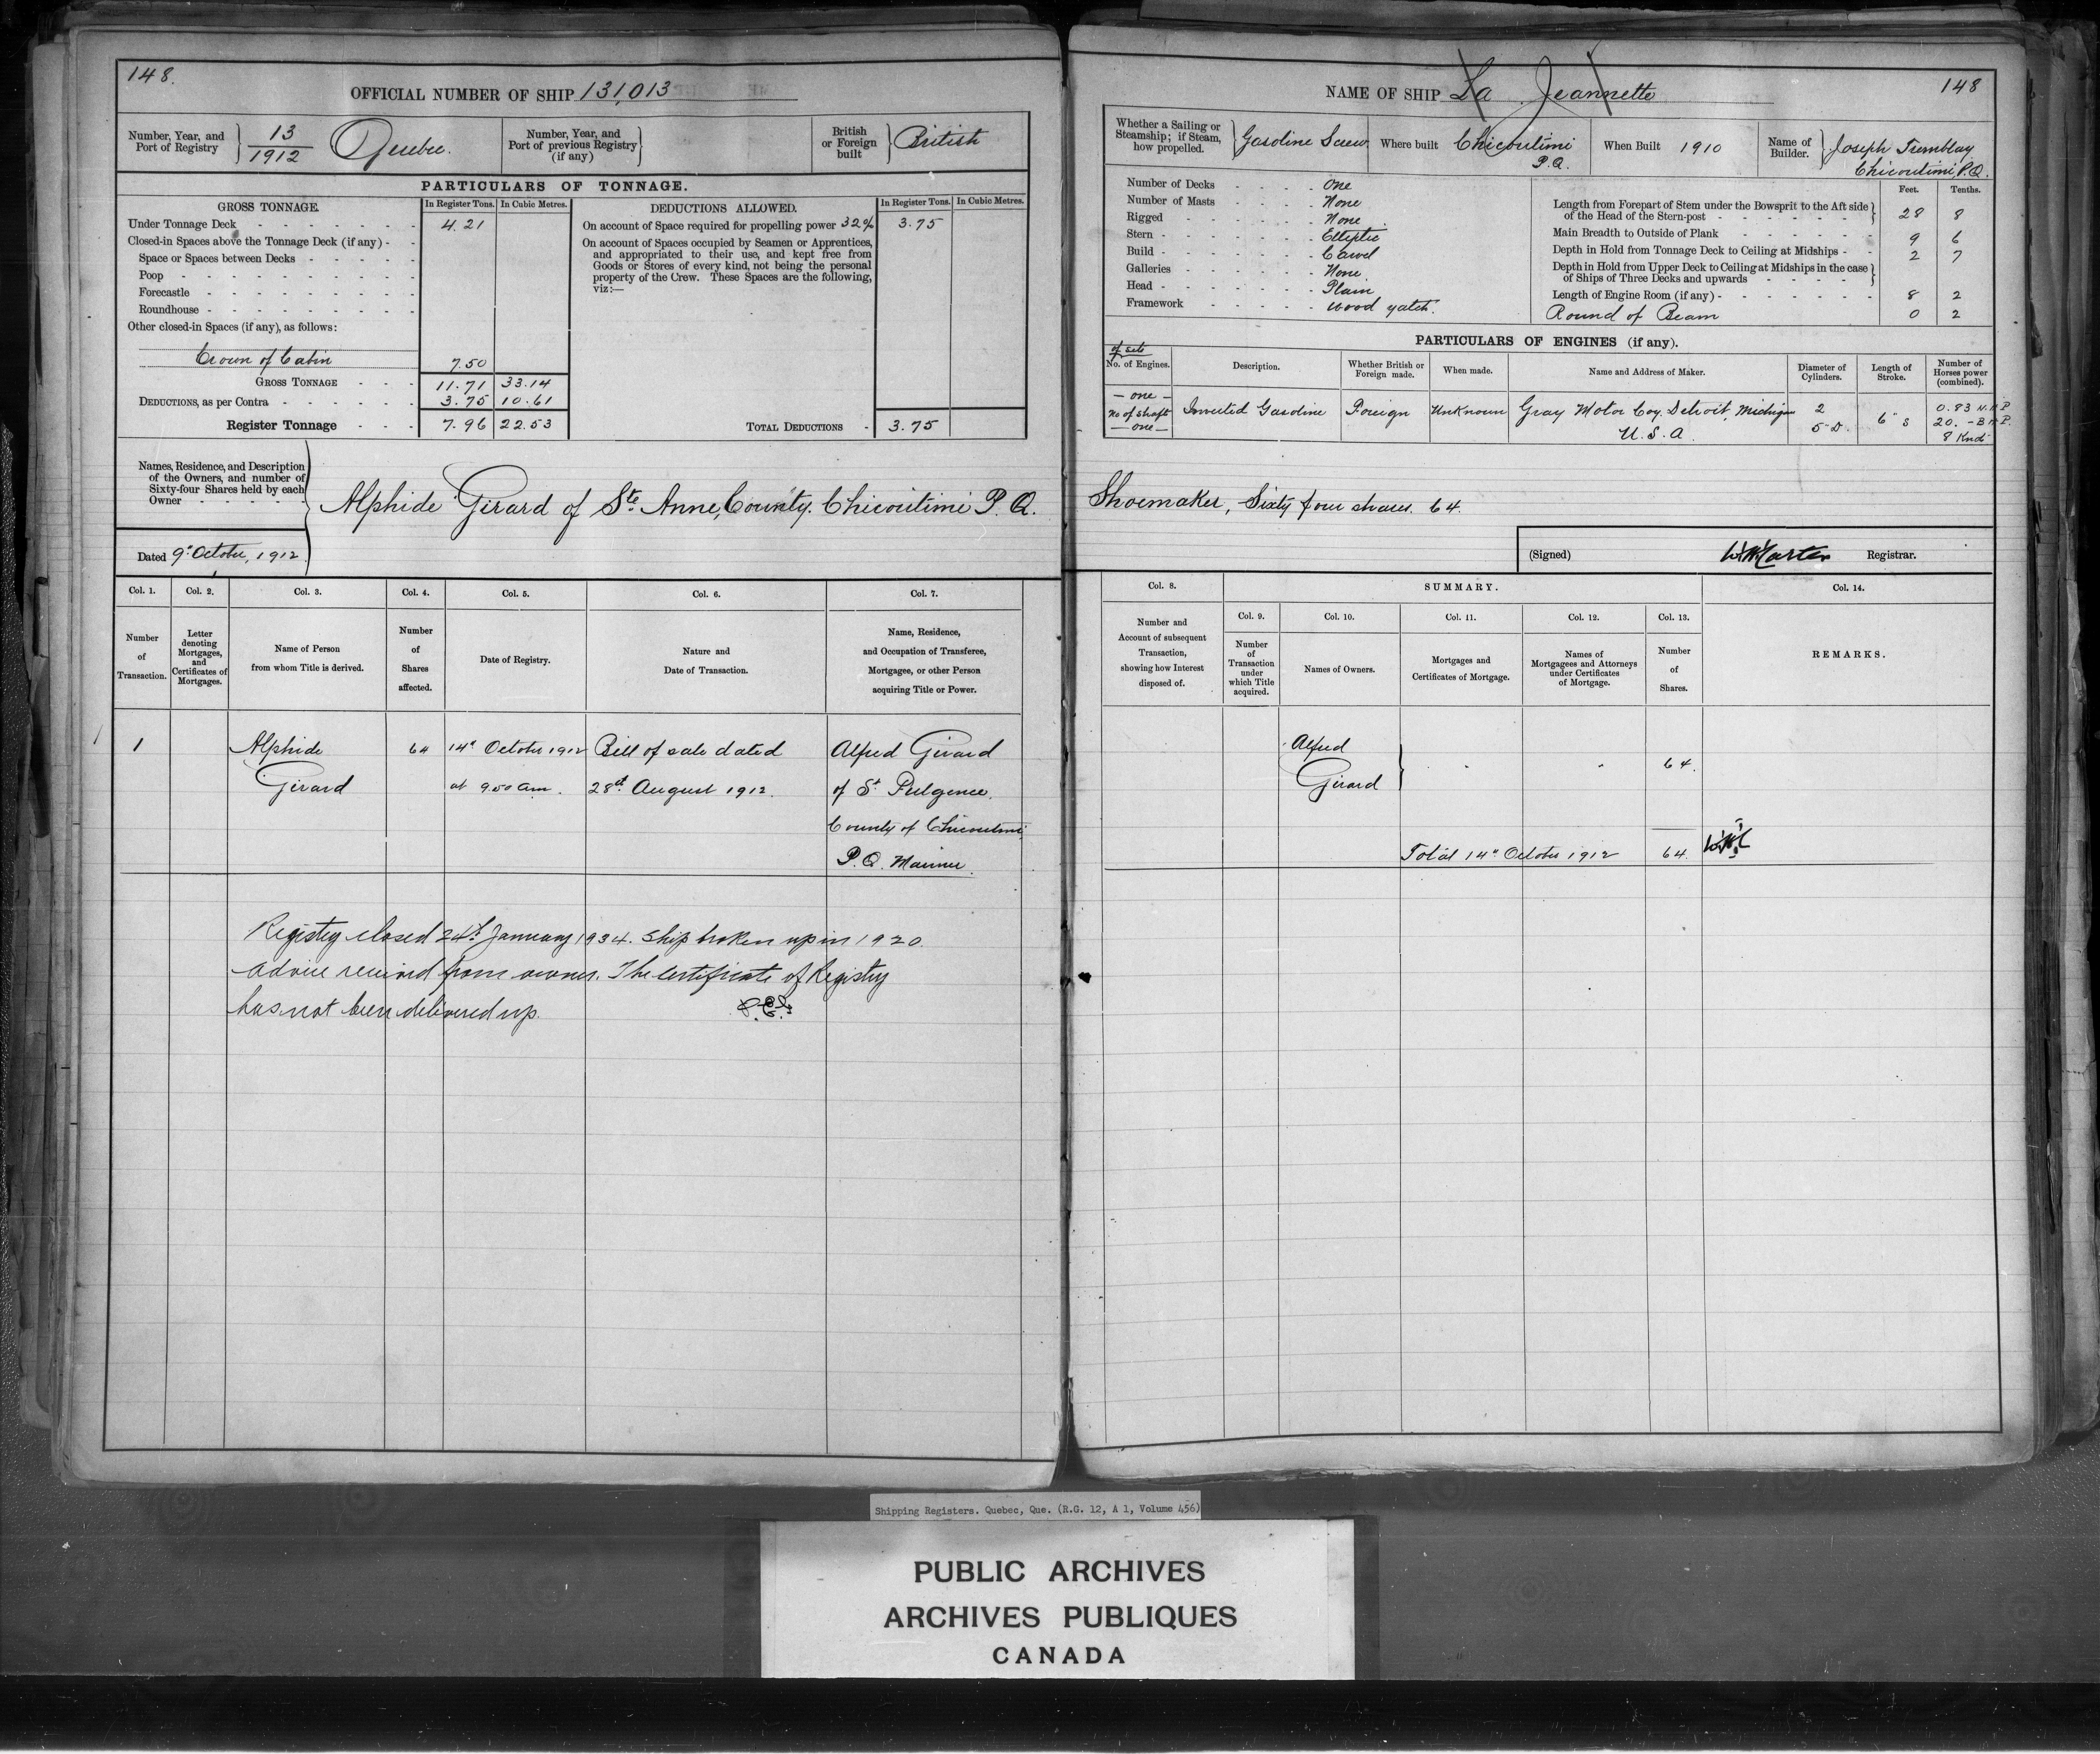 148.
OFFICIAL NUMBER OF SHIP 131,013
Number, Year, and Port of Registry 13/1912 Quebec.
Number, Year, and Port of previous Registry (if any)
British or Foreign built British
PARTICULARS OF TONNAGE.
GROSS TONNAGE. In Register Tons. In Cubic Metres.
Under Tonnage Deck 4.21
Closed-in Spaces above the Tonnage Deck (if any) -
Space or Spaces between Decks
Poop
Forecastle
Roundhouse
Other closed-in Spaces (if any), as follows:
Crown of Cabin 7.50
GROSS TONNAGE 11.71 33.14
DEDUCTIONS, as per Contra 3.75 10.61
Register Tonnage 7.96 22.53
DEDUCTIONS ALLOWED. In Register Tons. In Cubic Metres.
On account of Space required for propelling power 32% 3.75
On account of Spaces occupied by Seamen or Apprentices,
and appropriated to their use, and kept free from
Goods or Stores of every kind, not being the personal
property of the Crew. These Spaces are the following,
viz:—
TOTAL DEDUCTIONS - 3.75
Names, Residence, and Description
of the Owners, and number of
Sixty-four Shares held by each
Owner
Alphide Girard of Ste Anne, County. Chicoutimi P.Q.
Dated 9" October, 1912.
Col. 1. Col. 2. Col. 3. Col. 4. Col. 5. Col. 6. Col. 7.
Number of Transaction.
Letter denoting Mortgages, and Certificates of Mortgages.
Name of Person from whom Title is derived.
Number of Shares affected.
Date of Registry.
Nature and Date of Transaction.
Name, Residence, and Occupation of Transferee, Mortgagee, or other Person acquiring Title or Power.
1 Alphide 64 14" October 1912 Bill of sale dated Alfred Girard
Girard at 9.50 am. 28th August 1912. of St Fulgence.
County of Chicoutimi
P.Q. Mariner.
Registry closed 24th January 1934. Ship broken up in 1920.
Advice received from owner. The Certificate of Registry
has not been delivered up.
NAME OF SHIP La Jeannette
148
Whether a Sailing or Steamship; if Steam, how propelled. Gasoline Screw
Where built Chicoutimi P.Q.
When Built 1910
Name of Builder. Joseph Tremblay
Chicoutimi, P.Q.
Number of Decks One
Number of Masts None
Rigged None
Stern Elliptic
Build Carvel
Galleries None
Head Plain
Framework Wood yatch.
Feet. Tenths.
Length from Forepart of Stem under the Bowsprit to the Aft side of the Head of the Stern-post 28 8
Main Breadth to Outside of Plank 9 6
Depth in Hold from Tonnage Deck to Ceiling at Midships 2 7
Depth in Hold from Upper Deck to Ceiling at Midships in the case of Ships of Three Decks and upwards
Length of Engine Room (if any) 8 2
Round of Beam 0 2
PARTICULARS OF ENGINES (if any).
of sets
No. of Engines. Description. Whether British or Foreign made. When made. Name and Address of Maker. Diameter of Cylinders. Length of Stroke. Number of Horses power (combined).
— one —
No of shaft
— one —
Inverted Gasoline Foreign Unknown Gray Motor Coy. Detroit, Michigan
U.S.A.
2
5" D.
6" S
0.83 N.H.P.
20. - B.H.P.
Shoemaker, Sixty four shares. 64.
(Signed) Registrar.
Col. 8. SUMMARY. Col. 14.
Col. 9. Col. 10. Col. 11. Col. 12. Col. 13.
Number and Account of subsequent Transaction, showing how Interest disposed of.
Number of Transaction under which Title acquired.
Names of Owners.
Mortgages and Certificates of Mortgage.
Names of Mortgagees and Attorneys under Certificates of Mortgage.
Number of Shares.
REMARKS.
Alfred
Girard " " 64.
Total 14" October 1912 64.
Shipping Registers. Quebec, Que. (R.G. 12, A 1, Volume 456)
PUBLIC ARCHIVES
ARCHIVES PUBLIQUES
CANADA